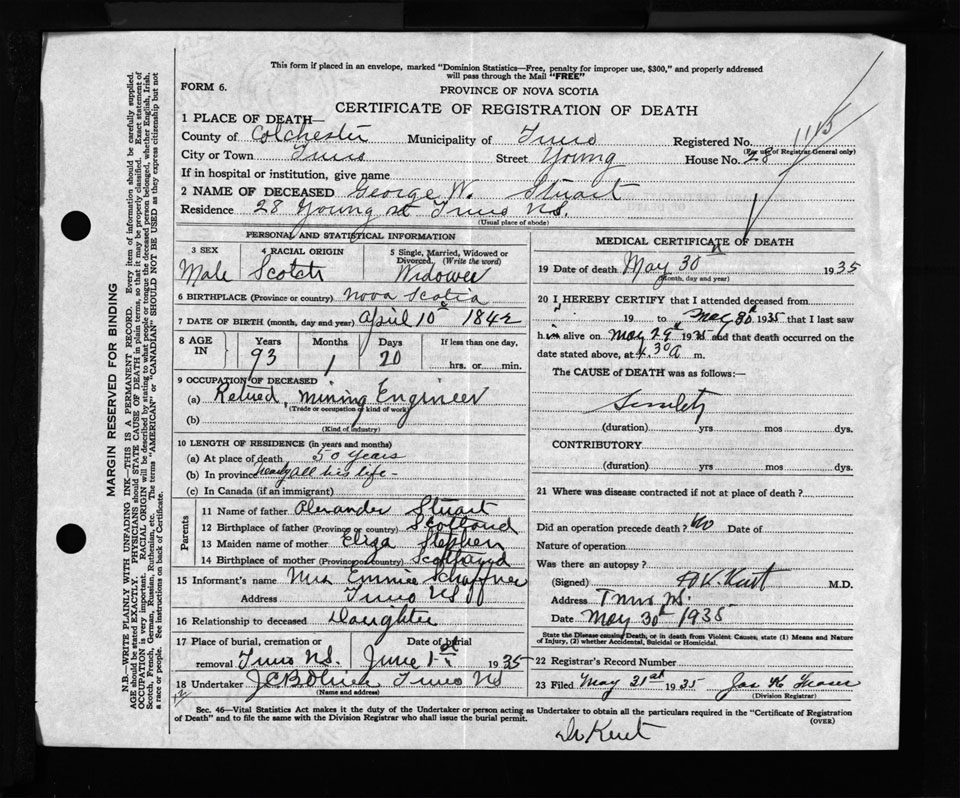 This form if placed in an envelope, marked "Dominion Statistics—Free, penalty for improper use, $300," and properly addressed
will pass through the Mail "FREE"
FORM 6.
PROVINCE OF NOVA SCOTIA
CERTIFICATE OF REGISTRATION OF DEATH
1 PLACE OF DEATH—
County of Colchester Municipality of Truro Registered No. 1145
(For use of Registrar General only)
City or Town Truro Street Young House No. 28
If in hospital or institution, give name
2 NAME OF DECEASED George W. Stuart
Residence 28 Young st Truro N.S.
(Usual place of abode)
PERSONAL AND STATISTICAL INFORMATION
3 SEX 4 RACIAL ORIGIN 5 Single, Married, Widowed or
Divorced. (Write the word)
Male Scotch Widower
6 BIRTHPLACE (Province or country) Nova Scotia
7 DATE OF BIRTH (month, day and year) April 10th 1842
8 AGE IN Years Months Days If less than one day,
93 1 20 hrs. or min.
9 OCCUPATION OF DECEASED
(a) Retired, Mining Engineer
(Trade or occupation of kind of work)
(b)
(Kind of industry)
10 LENGTH OF RESIDENCE (in years and months)
(a) At place of death 50 years
(b) In province nearly all his life -
(c) In Canada (if an immigrant)
Parents
11 Name of father Alexander Stuart
12 Birthplace of father (Province or country) Scotland
13 Maiden name of mother Eliza Stephen
14 Birthplace of mother (Province or country) Scotland
15 Informant's name Mrs Emmie Schaffner
Address Truro NS
16 Relationship to deceased Daughter
17 Place of burial, cremation or Date of burial
removal Truro N.S. June 1st 1935
18 Undertaker Truro NS
(Name and address)
MEDICAL CERTIFICATE OF DEATH
19 Date of death May 30th 1935
(Month, day and year)
20 I HEREBY CERTIFY that I attended deceased from
19 to May 30th 1935 that I last saw
him alive on May 29th 1935 and that death occurred on the
date stated above, at 4.30 a m.
The CAUSE of DEATH was as follows:—
Senility
(duration) yrs mos dys.
CONTRIBUTORY
(duration) yrs mos dys.
21 Where was disease contracted if not at place of death?
Did an operation precede death? No Date of
Nature of operation
Was there an autopsy?
(Signed) Kent M.D.
Address Truro N.S.
Date May 30th 1935
State the Disease causing Death, or in death from Violent Causes, state (1) Means and Nature
of Injury, (2) whether Accidental, Suicidal or Homicidal.
22 Registrar's Record Number
23 Filed May 31st 1935
(Division Registrar)
Sec. 46—Vital Statistics Act makes it the duty of the Undertaker or person acting as Undertaker to obtain all the particulars required in the "Certificate of Registration
of Death" and to file the same with the Division Registrar who shall issue the burial permit.
(OVER)
Dr Kent
MARGIN RESERVED FOR BINDING
N.B.—WRITE PLAINLY WITH UNFADING INK—THIS IS A PERMANENT RECORD. Every item of information should be carefully supplied.
AGE should be stated EXACTLY. PHYSICIANS should STATE CAUSE OF DEATH in plain terms, so that it may be properly classified. Exact statement of
OCCUPATION is very important. RACIAL ORIGIN will be described by stating to what people or tongue the deceased person belonged, whether English, Irish,
Scotch, French, German, Russian, Ruthenian, etc. The terms "AMERICAN" or "CANADIAN" SHOULD NOT BE USED as they express citizenship but not
a race or people. See instructions on back of Certificate.